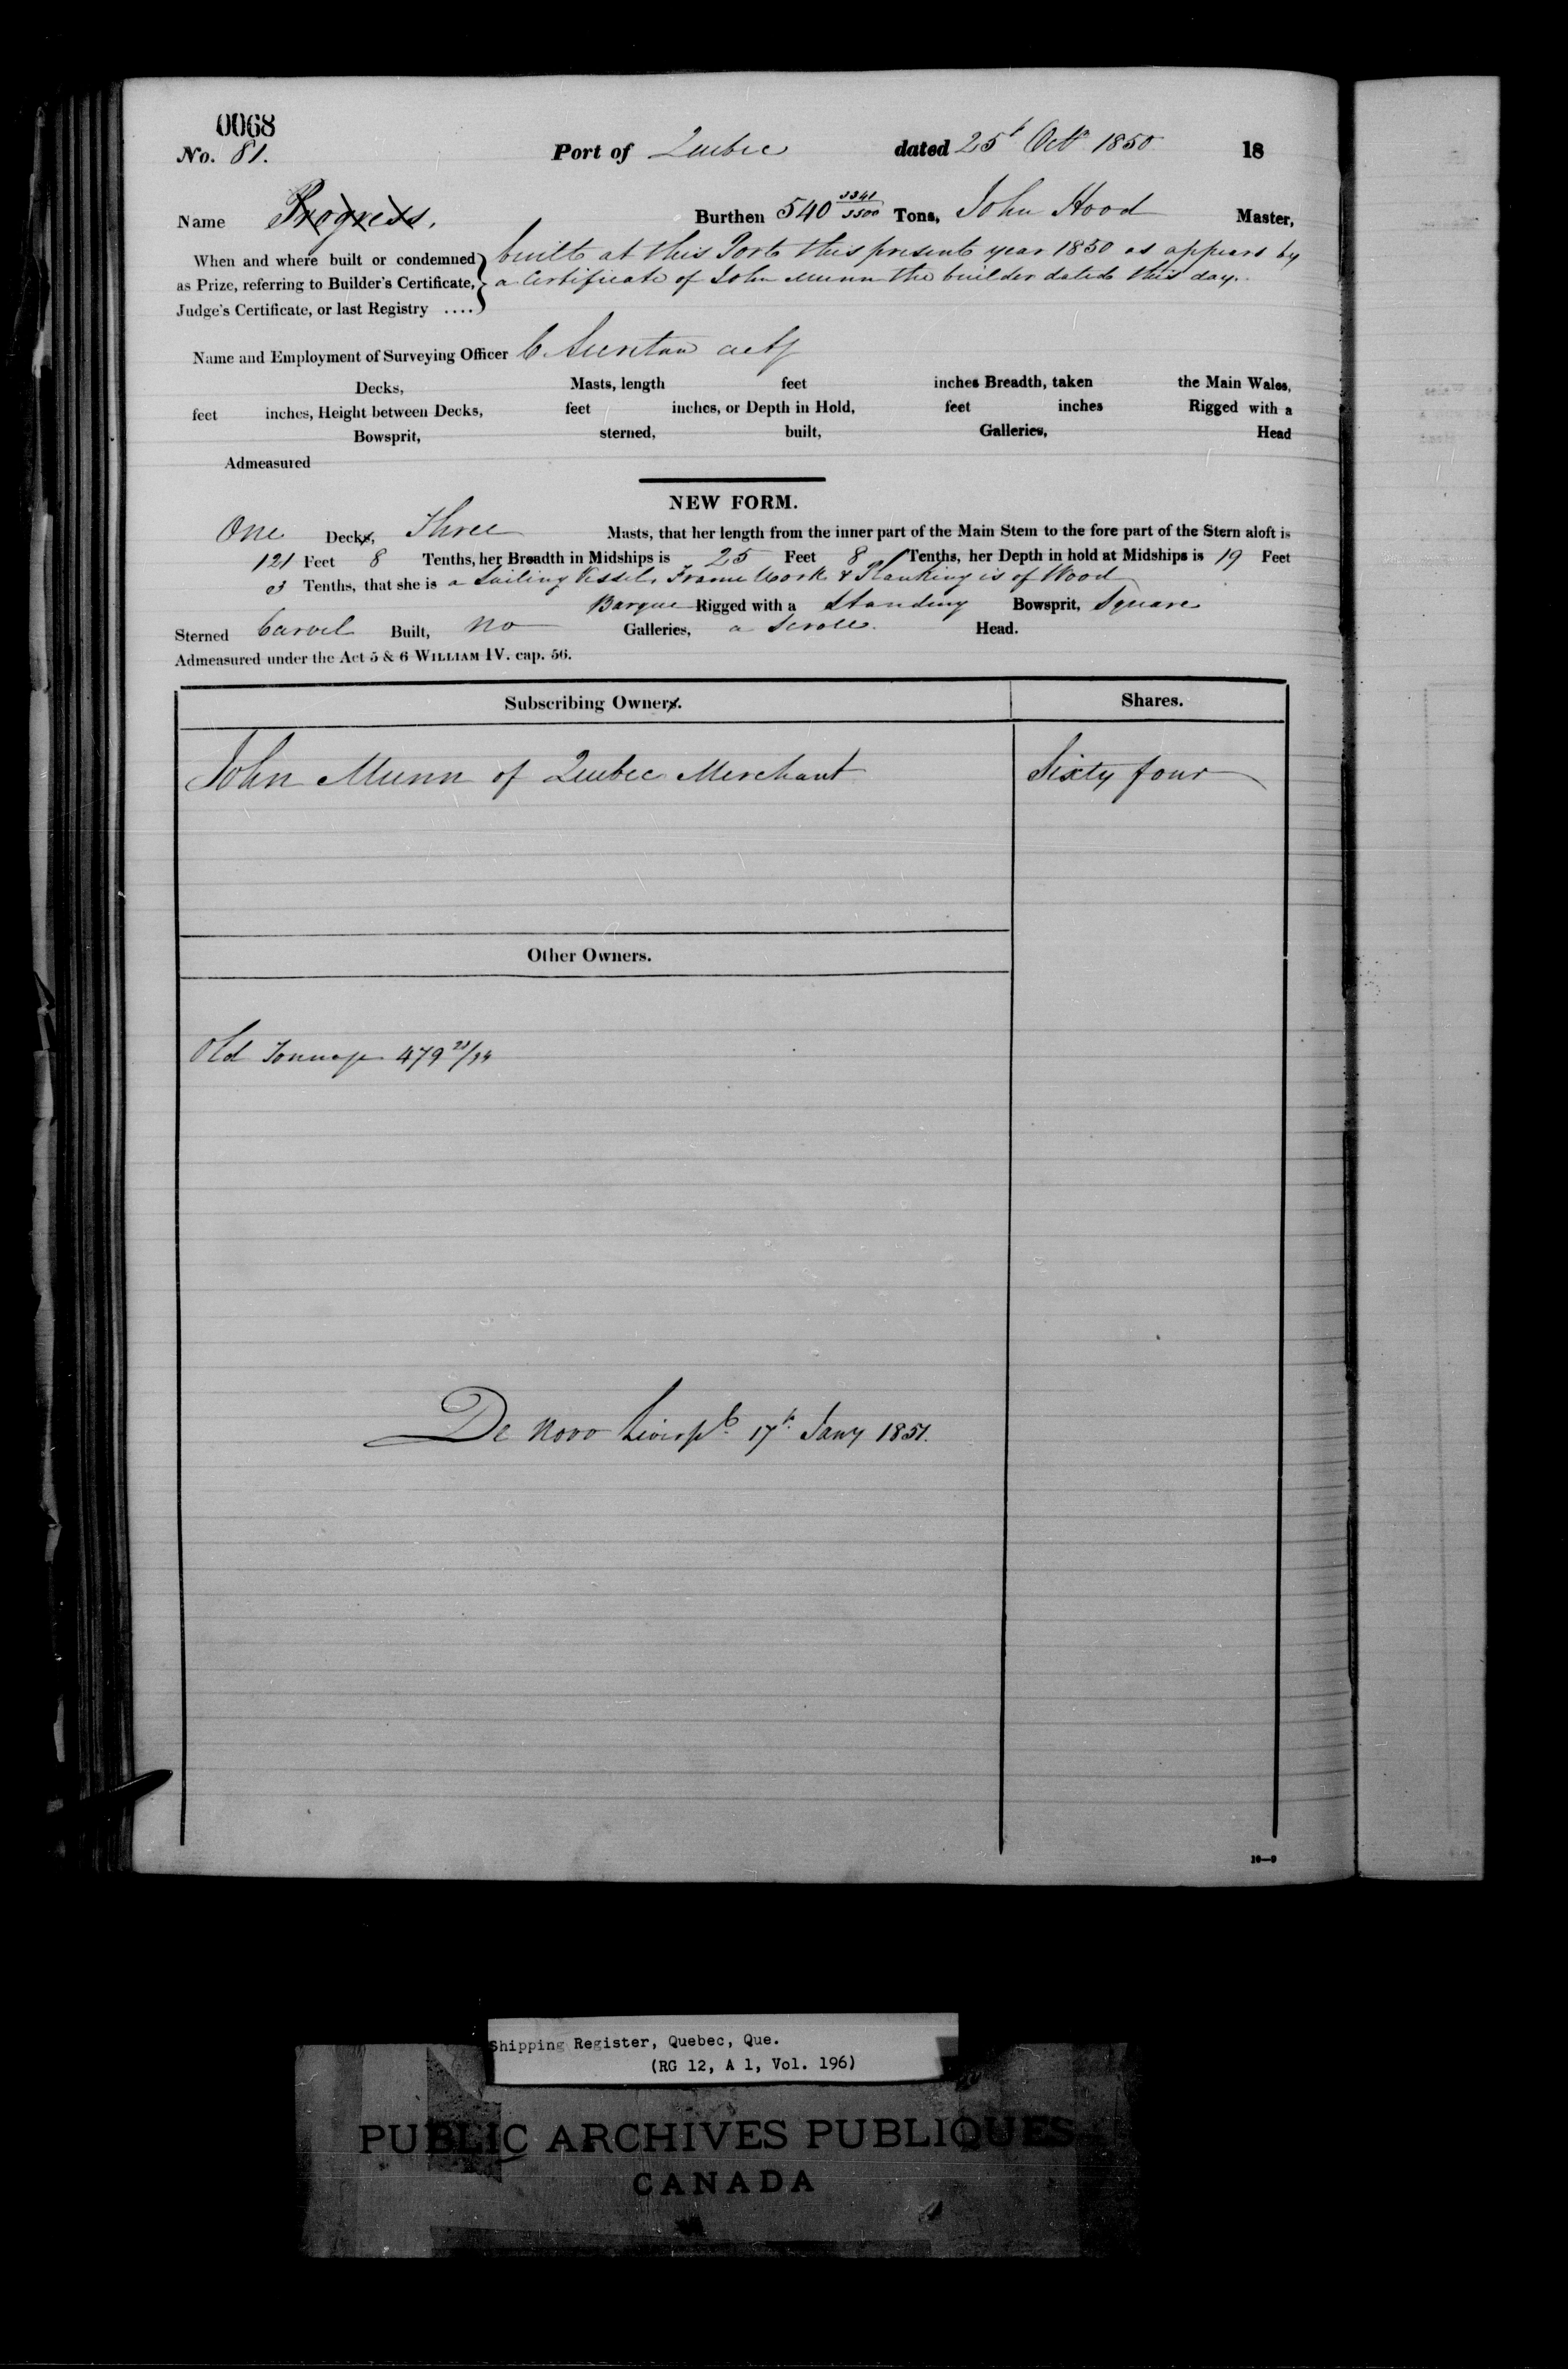 0068
No. 81. Port of Quebec dated 25t Octr 1850 18
Name Progress. Burthen 540 1341/3500 Tons, John Hood Master,
When and where built or condemned built at this Port this present year 1850 as appears by
as Prize, referring to Builder's Certificate, a Certificate of John Munn the builder dated this day.
Judge's Certificate, or last Registry ....
Name and Employment of Surveying Officer C.
Decks, Masts, length feet inches Breadth, taken the Main Wales,
feet inches, Height between Decks, feet inches, or Depth in Hold, feet inches Rigged with a
Bowsprit, sterned, built, Galleries, Head
Admeasured
NEW FORM.
One Decks, Three Masts, that her length from the inner part of the Main Stem to the fore part of the Stern aloft is
121 Feet 8 Tenths, her Breadth in Midships is 25 Feet 8 Tenths, her Depth in hold at Midships is 19 Feet
3 Tenths, that she is a Sailing Vessel, Frame Work & Planking is of Wood
Barque Rigged with a Standing Bowsprit, Square
Sterned Carvel Built, no Galleries, a Scroll Head.
Admeasured under the Act 5 & 6 WILLIAM IV. cap. 56.
Subscribing Owners. Shares.
John Munn of Quebec Merchant Sixty four
Other Owners.
Old Tonnage 479 23/94
De Novo Liverpl 17t Jany 1851.
10—9
Shipping Register, Quebec, Que.
(RG 12, A 1, Vol. 196)
PUBLIC ARCHIVES PUBLIQUES
CANADA